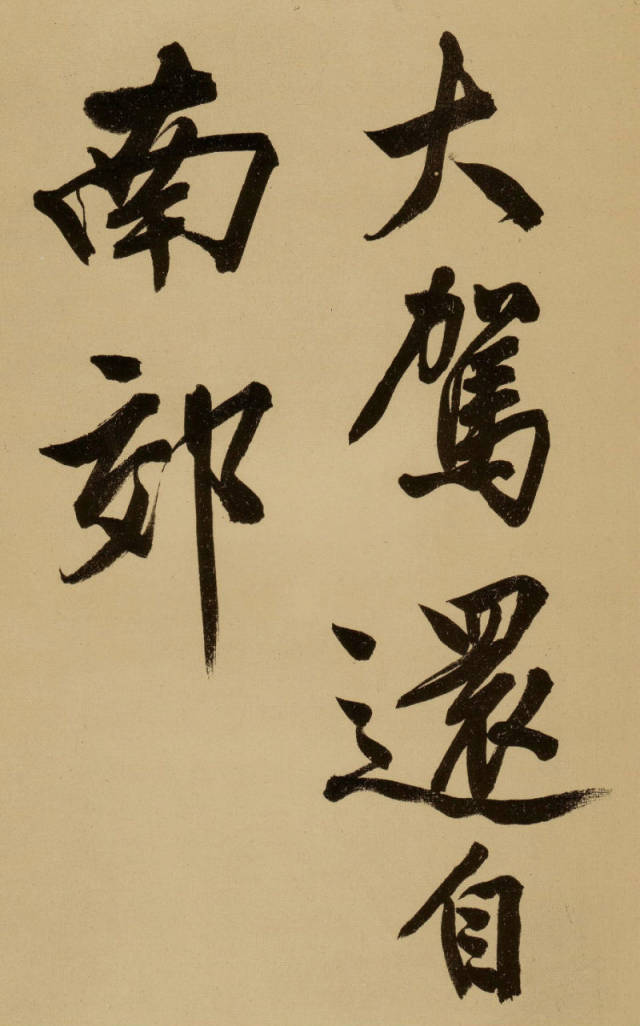 大駕還自
南郊